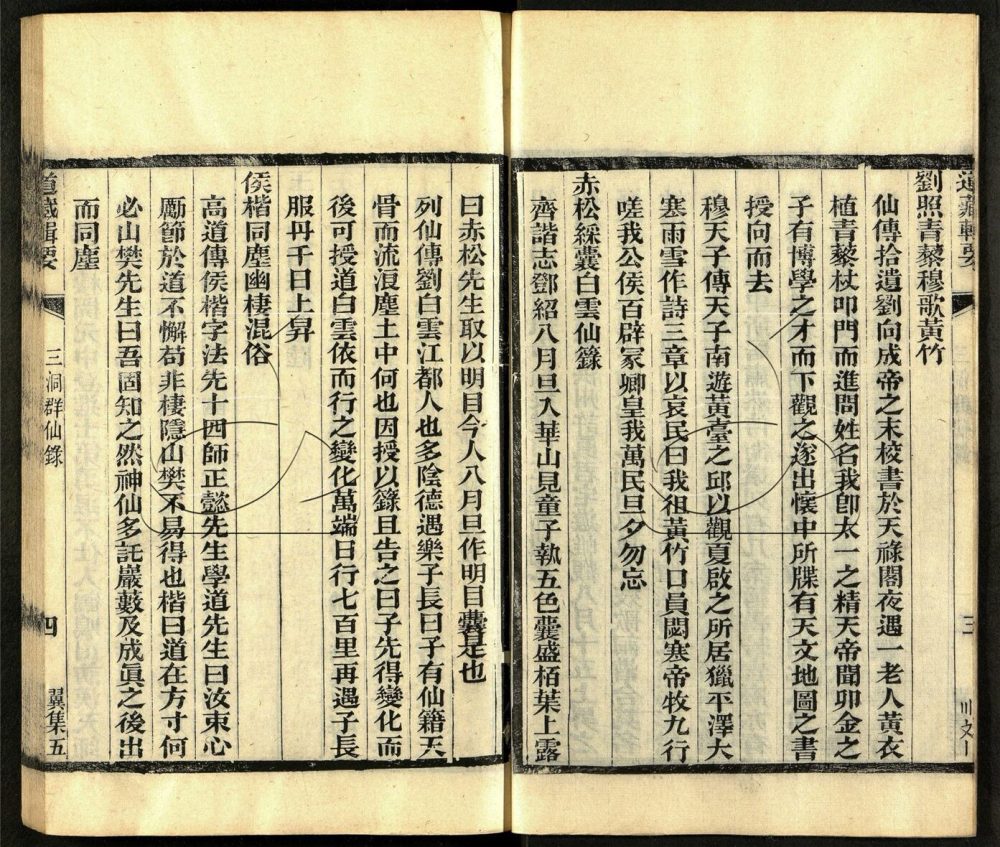 道藏輯要
三
劉照青藜穆歌黃竹
仙傳拾遺劉向成帝之末校書於天祿閣夜遇一老人黃衣
植青藜杖叩門而進問姓名我卽太一之精天帝聞卯金之
子有博學之才而下觀之遂出懷中所牒有天文地圖之書
授向而去
穆天子傳天子南遊黃臺之邱以觀夏啟之所居獵平澤大
寒雨雪作詩三章以哀民曰我祖黃竹口員閟寒帝牧九行
嗟我公侯百辟冢卿皇我萬民旦夕勿忘
赤松綵囊白雲仙籙
齊諧志鄧紹八月旦入華山見童子執五色囊盛栢葉上露
曰赤松先生取以明目今人八月旦作明目囊是也
列仙傳劉白雲江都人也多陰德遇樂子長曰子有仙籍天
骨而流浪塵土中何也因授以籙且告之曰子先得變化而
後可授道白雲依而行之變化萬端日行七百里再遇子長
服丹千日上昇
侯楷同塵幽棲混俗
高道傳侯楷字法先十四師正懿先生學道先生曰汝束心
勵節於道不懈苟非棲隱山樊不易得也楷曰道在方寸何
必山樊先生曰吾固知之然神仙多託巖藪及成眞之後出
而同塵
道藏輯要
三洞群仙錄
四
翼集五